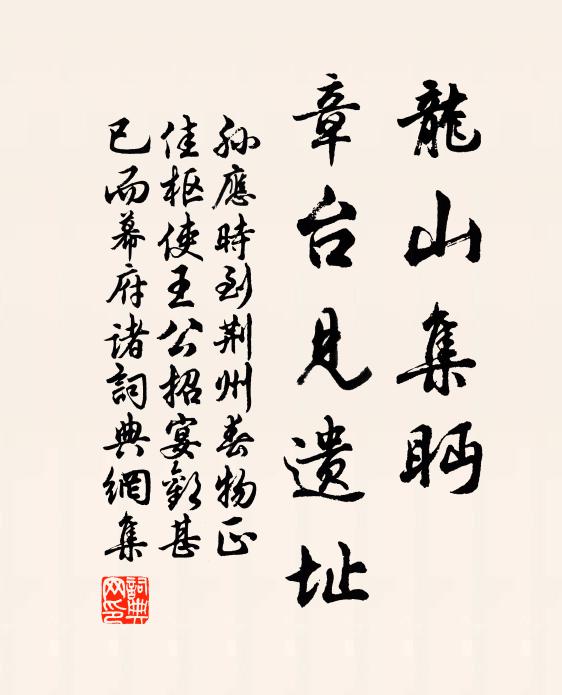 龍山集眄
章台見遺址
孫應時到荆州春物正
佳枢使王公招宴歡甚
已而幕府諸詞典網集
詞典网印